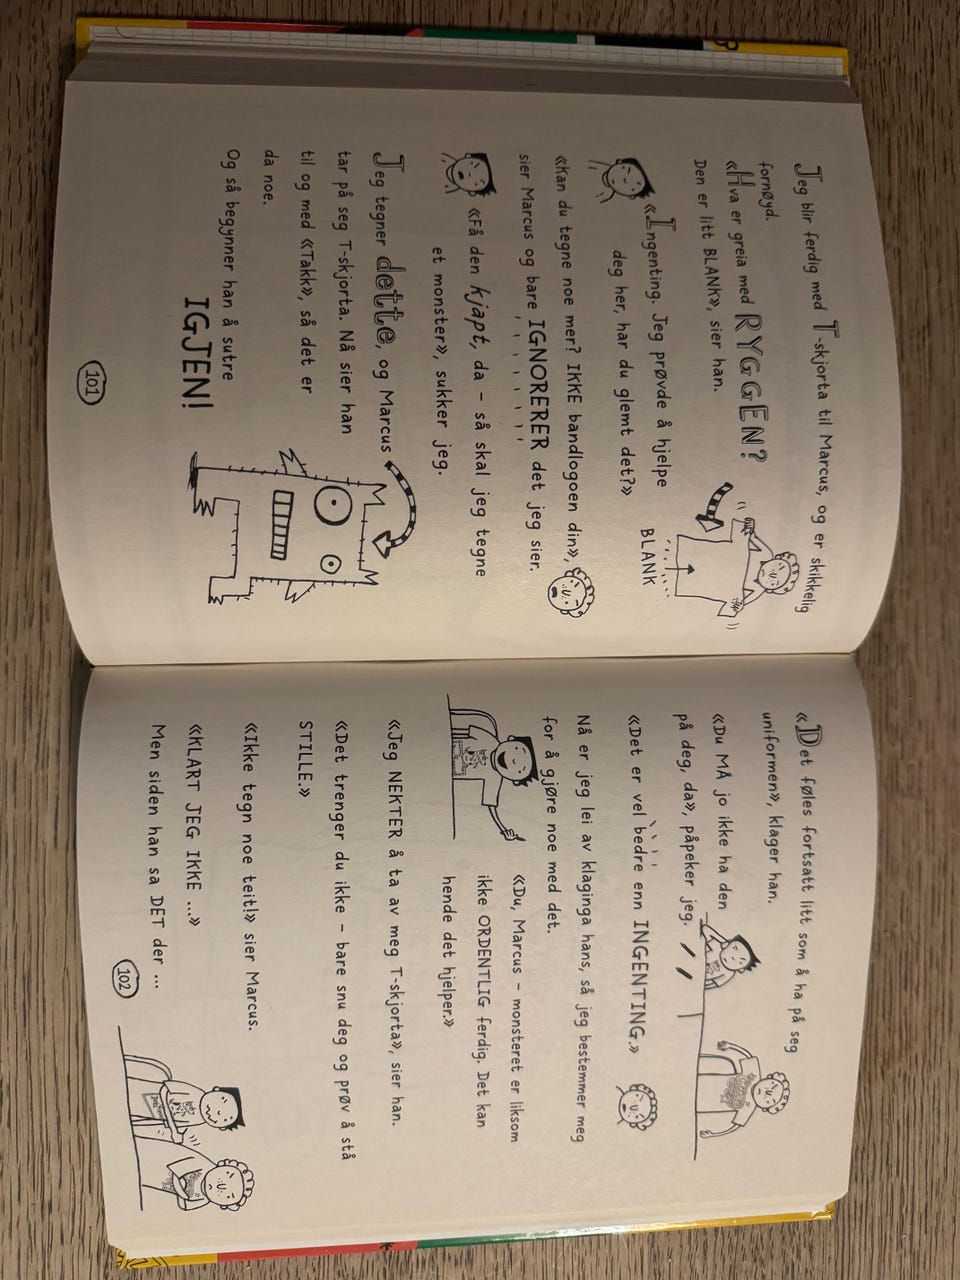 Jeg blir ferdig med T-skjorta til Marcus, og er skikkelig
fornøyd.
«Hva er greia med RYGGEN?
Den er litt BLANK», sier han.
BLANK
«Ingenting. Jeg prøvde å hjelpe
deg her, har du glemt det?»
«Kan du tegne noe mer? IKKE bandlogoen din»,
sier Marcus og bare IGNORERER det jeg sier.
«Få den kjapt, da – så skal jeg tegne
et monster», sukker jeg.
Jeg tegner dette, og Marcus
tar på seg T-skjorta. Nå sier han
til og med «Takk», så det er
da noe.
Og så begynner han å sutre
IGJEN!
101
«Det føles fortsatt litt som å ha på seg
uniformen», klager han.
«Du MÅ jo ikke ha den
på deg, da», påpeker jeg.
«Det er vel bedre enn INGENTING.»
Nå er jeg lei av klaginga hans, så jeg bestemmer meg
for å gjøre noe med det.
«Du, Marcus – monsteret er liksom
ikke ORDENTLIG ferdig. Det kan
hende det hjelper.»
«Jeg NEKTER å ta av meg T-skjorta», sier han.
«Det trenger du ikke – bare snu deg og prøv å stå
STILLE.»
«Ikke tegn noe teit!» sier Marcus.
«KLART JEG IKKE ...»
Men siden han sa DET der ...
102